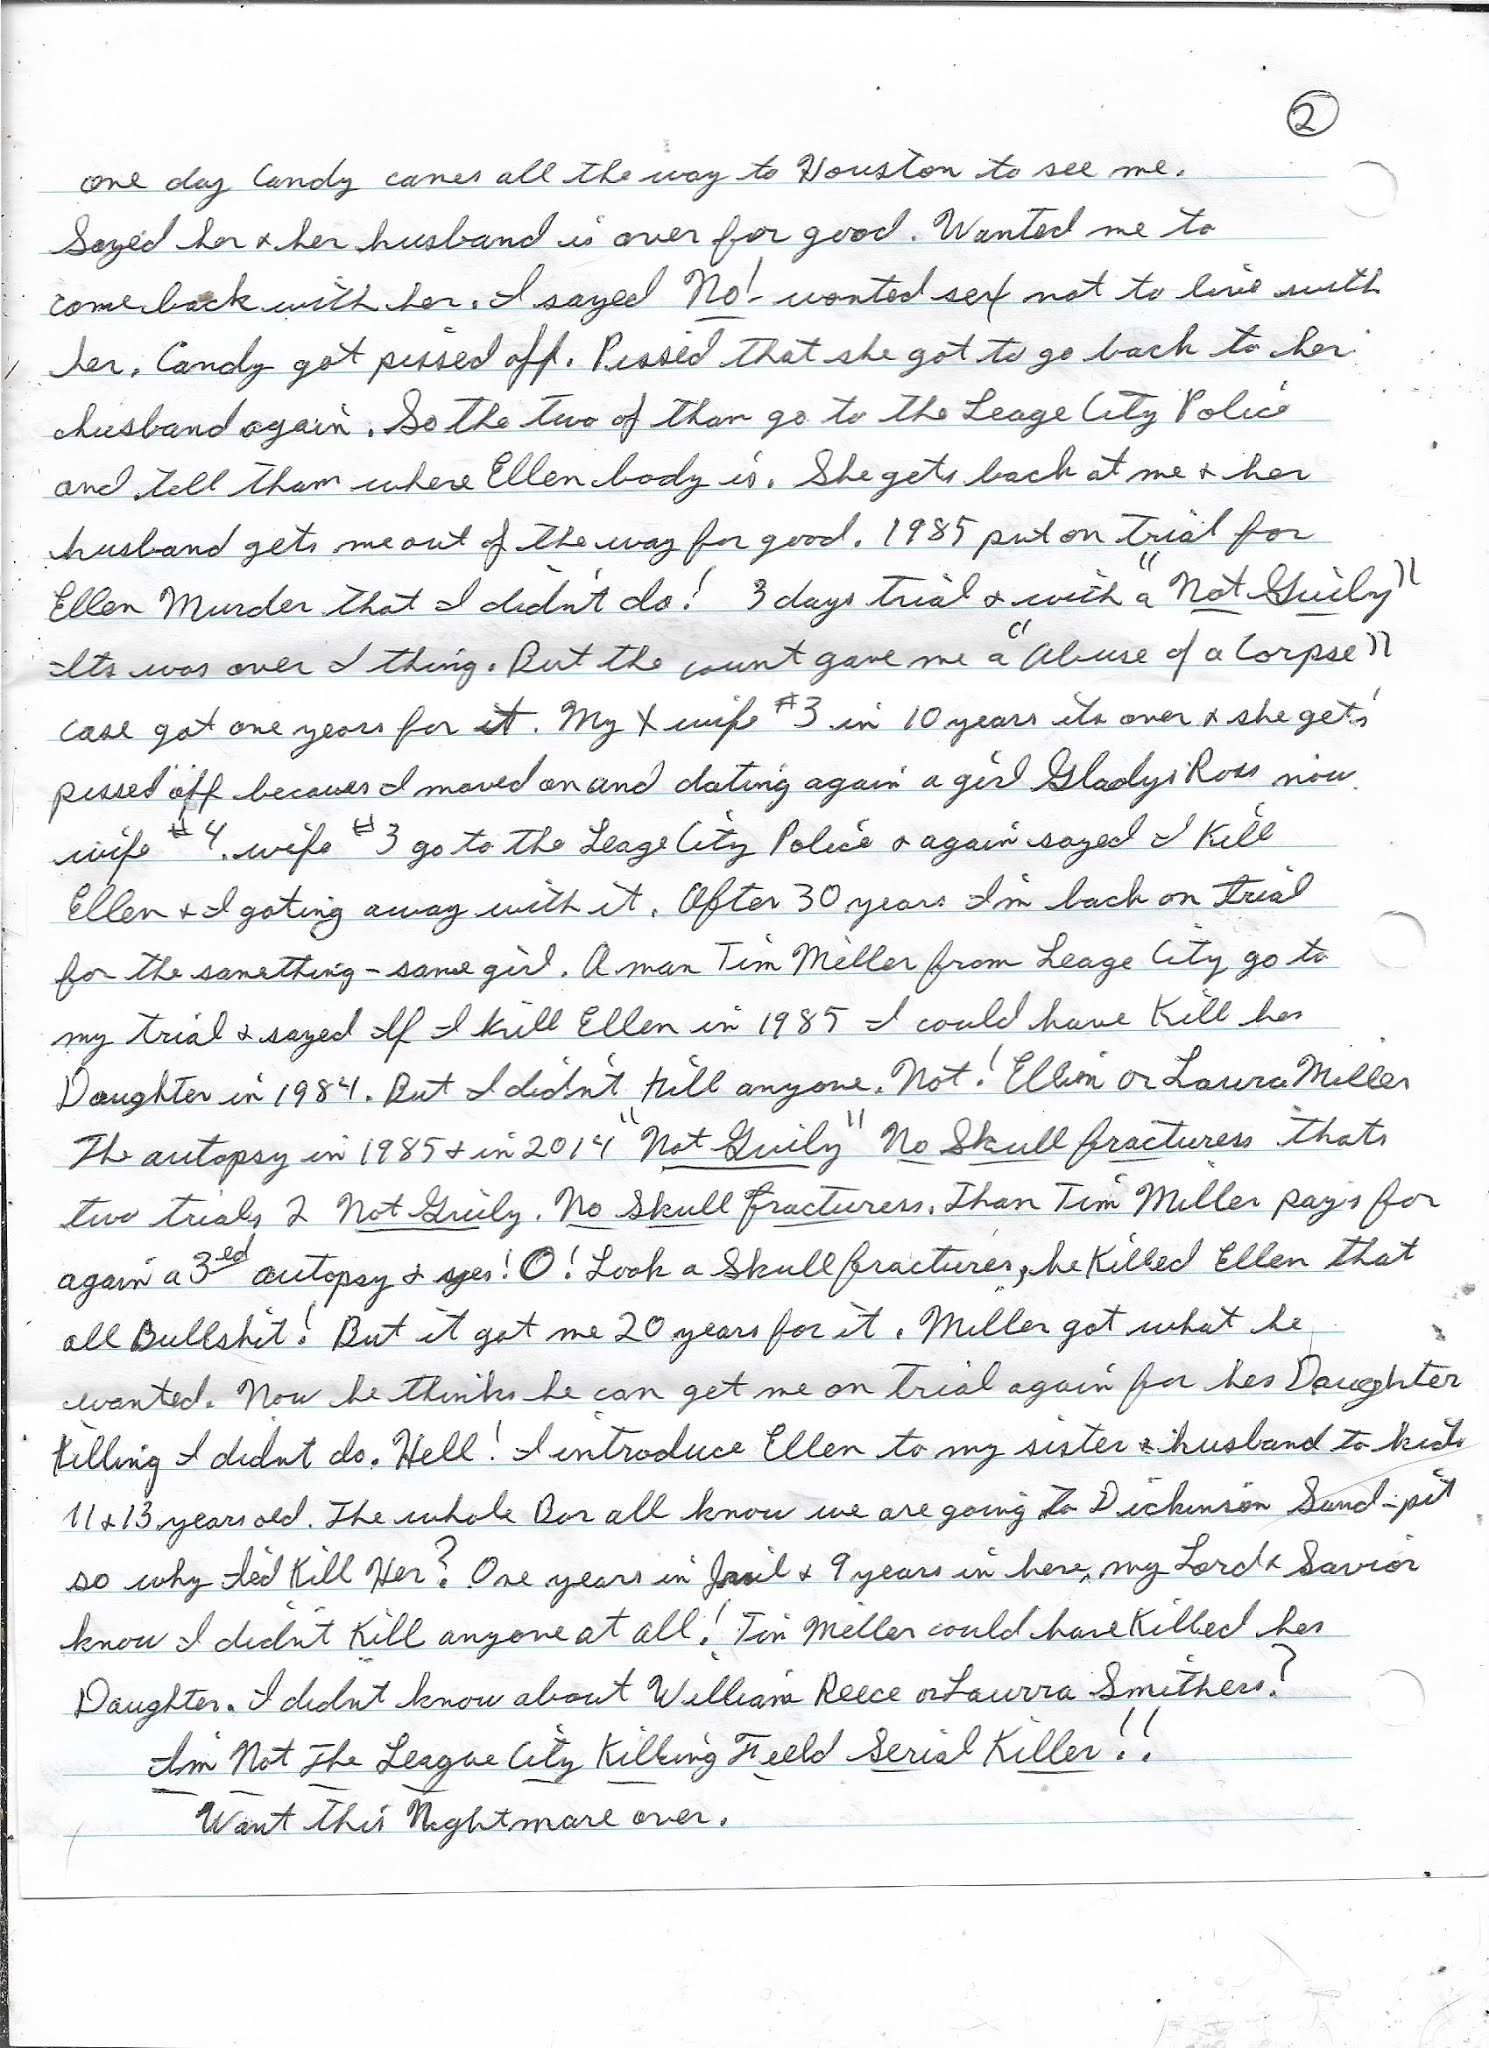 2
one day Candy cames all the way to Houston to see me.
Sayed her & her husband is over for good. Wanted me to
come back with her. I sayed No! - wanted sex not to live with
her. Candy got pissed off. Pissed that she got to go back to her
husband again. So the two of tham go to the Leage City Police
and tell tham where Ellen body is. She gets back at me & her
husband gets me out of the way for good. 1985 put on trial for
Ellen Murder that I didn't do! 3 days trial & with a "Not Guily"
Its was over I thing. But the count gave me a "Abuse of a Corpse"
case got one years for it. My X wife #3 in 10 years its over & she gets
pissed off becaues I moved on and dating again a girl Gladys Ross now
wife #4. wife #3 go to the Leage City Police & again sayed I Kill
Ellen & I goting away with it. After 30 years I'm back on trial
for the samething - same girl. A man Tim Miller from Leage City go to
my trial & sayed If I kill Ellen in 1985 I could have Kill hes
Daughter in 1984. But I didn't Kill anyone. Not! Ellen or Laura Miller
The autopsy in 1985 & in 2014 "Not Guily" No Skull fracturess thats
two trials 2 Not Guily. No Skull fracturess. Than Tim Miller pays for
again a 3ed autopsy & yes! O! Look a Skull fractures, he Killed Ellen that
all Bullshit! But it got me 20 years for it. Miller got what he
wanted. Now he thinks he can get me on trial again for hes Daughter
Killing I didnt do. Hell! I introduce Ellen to my sister & husband to kids
11 & 13 years old. The whole Bar all know we are going to Dickinson Sand-pit
so why I'ed Kill Her? One years in Jail & 9 years in here, my Lord & Savior
know I didn't Kill anyone at all! Tim Miller could have Killed hes
Daughter. I didnt know about William Reece or Laurra Smithers?
I'm Not The League City Killing Field Serial Killer!!
Want this Nightmare over.